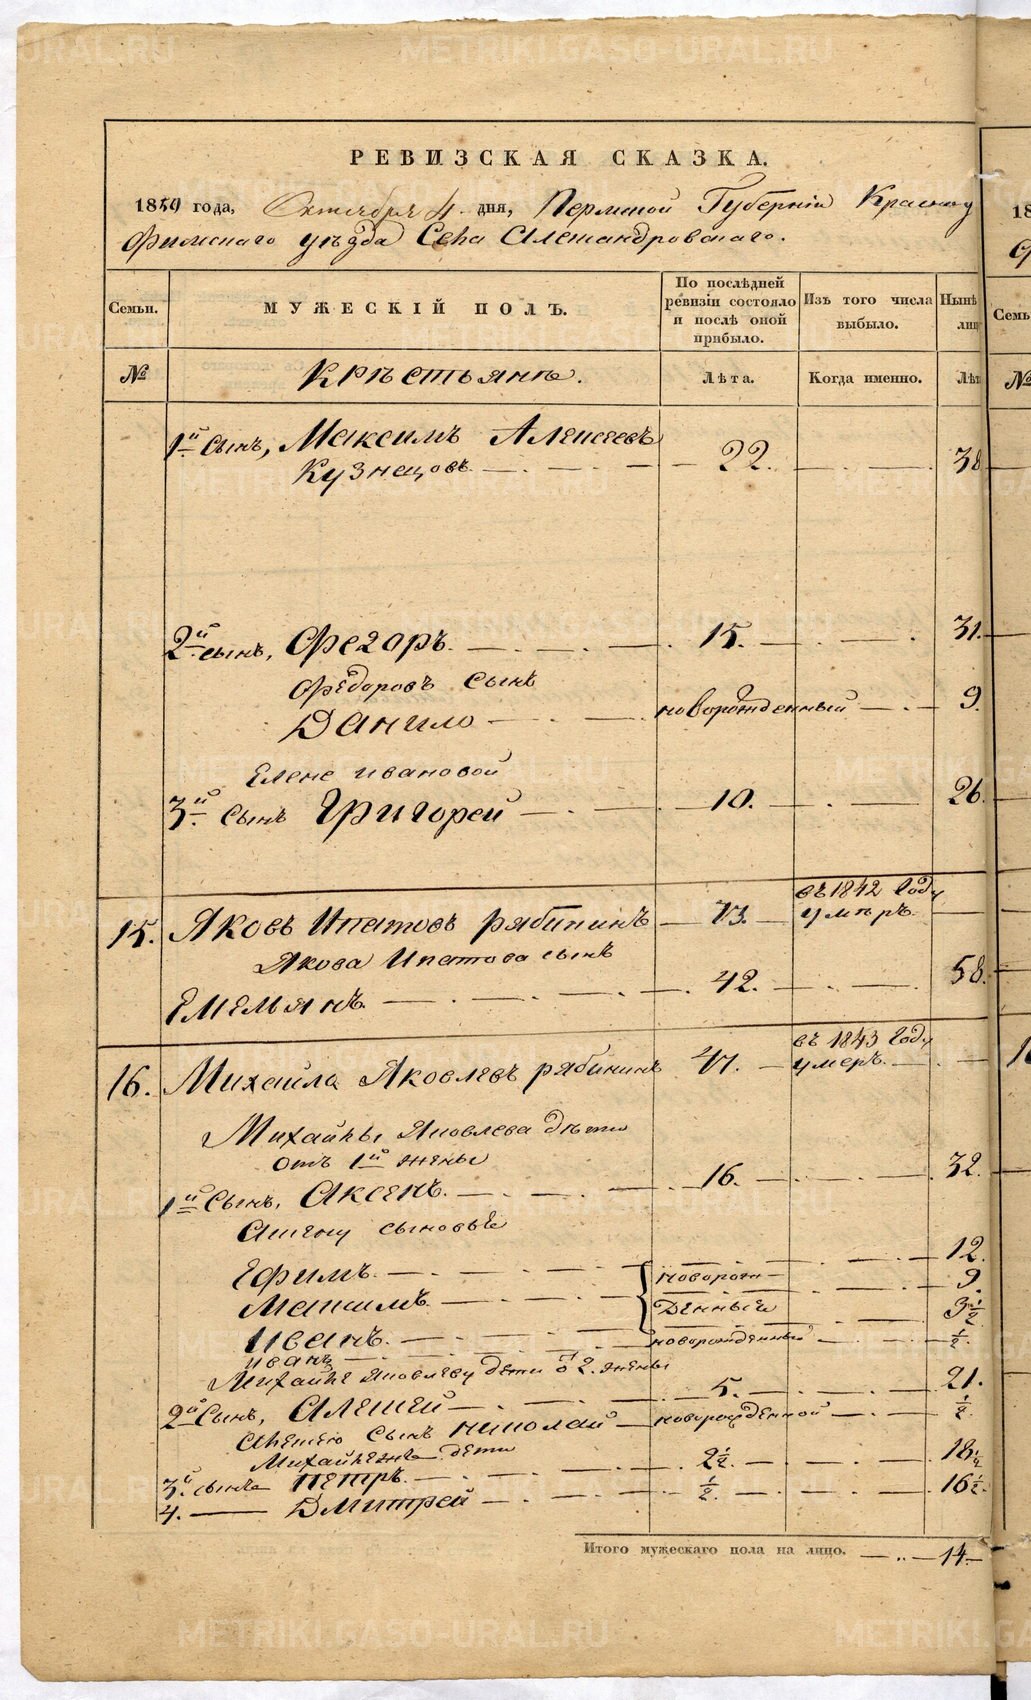 РЕВИЗСКАЯ СКАЗКА.
1850 года, Октября 4 дня, Пермской Губернiи Красноу
фимскаго уѣзда Села Александровскаго.
Семьи. МУЖЕСКІЙ ПОЛЪ. По послѣдней ревизіи состояло и послѣ оной прибыло. Изъ того числа выбыло. Нынѣ
№ Крѣстьянѣ. Лѣта. Когда именно.
1й Сынъ, Максимъ Алексеевъ
Кузнецовъ 22. 38
2й сынъ, Федоръ. 15. 31.
Федоровъ сынъ
Данило новорожденный 9.
Елене ивановой
3й Сынъ Григорей 10. 26.
15. Яковъ Ипатовъ рябининъ 73. въ 1842 году умѣръ.
Якова Ипатова сынъ
Емельянъ. 42. 58.
16. Михайла Яковлевъ рябининъ 47. въ 1843 году умеръ.
Михайлы Яковлева дѣти
отъ 1й жены
1й Сынъ, Аксенъ. 16. 32.
Аксену сыновье
Ефимъ. новорож 12.
Максимъ денные 9.
3 1/2
Иванъ. новорожденный 1/2.
иванъ
Михайле Яковлеву дети 2. жены
2й Сынъ, Алексей 5. 21.
Алексею сынъ николай новорожденной 1/2.
дети
3й сынъ Петръ. 2 1/2. 18 1/2
4. Дмитрей 1/2. 16 1/2.
Итого мужескаго пола на лицо. 14
METRIKI.GASO-URAL.RU